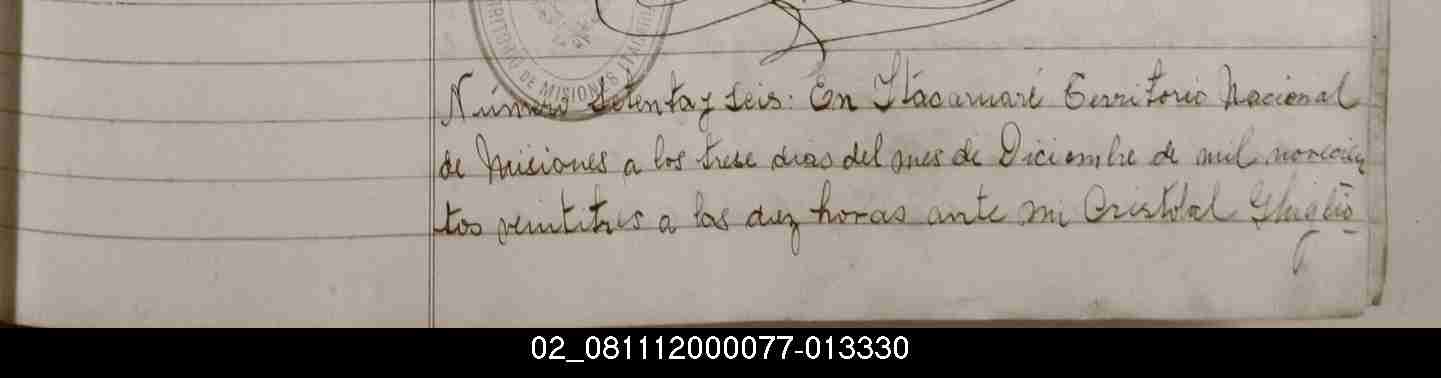 TERRITORIO DE MISIONES ITACARUARÉ
Número Setenta y seis: En Itacaruaré Territorio Nacional
de Misiones a los trese dias del mes de Diciembre de mil novecien
tos veintitres a las diez horas ante mi Cristobal Ghiglio
02_081112000077-013330